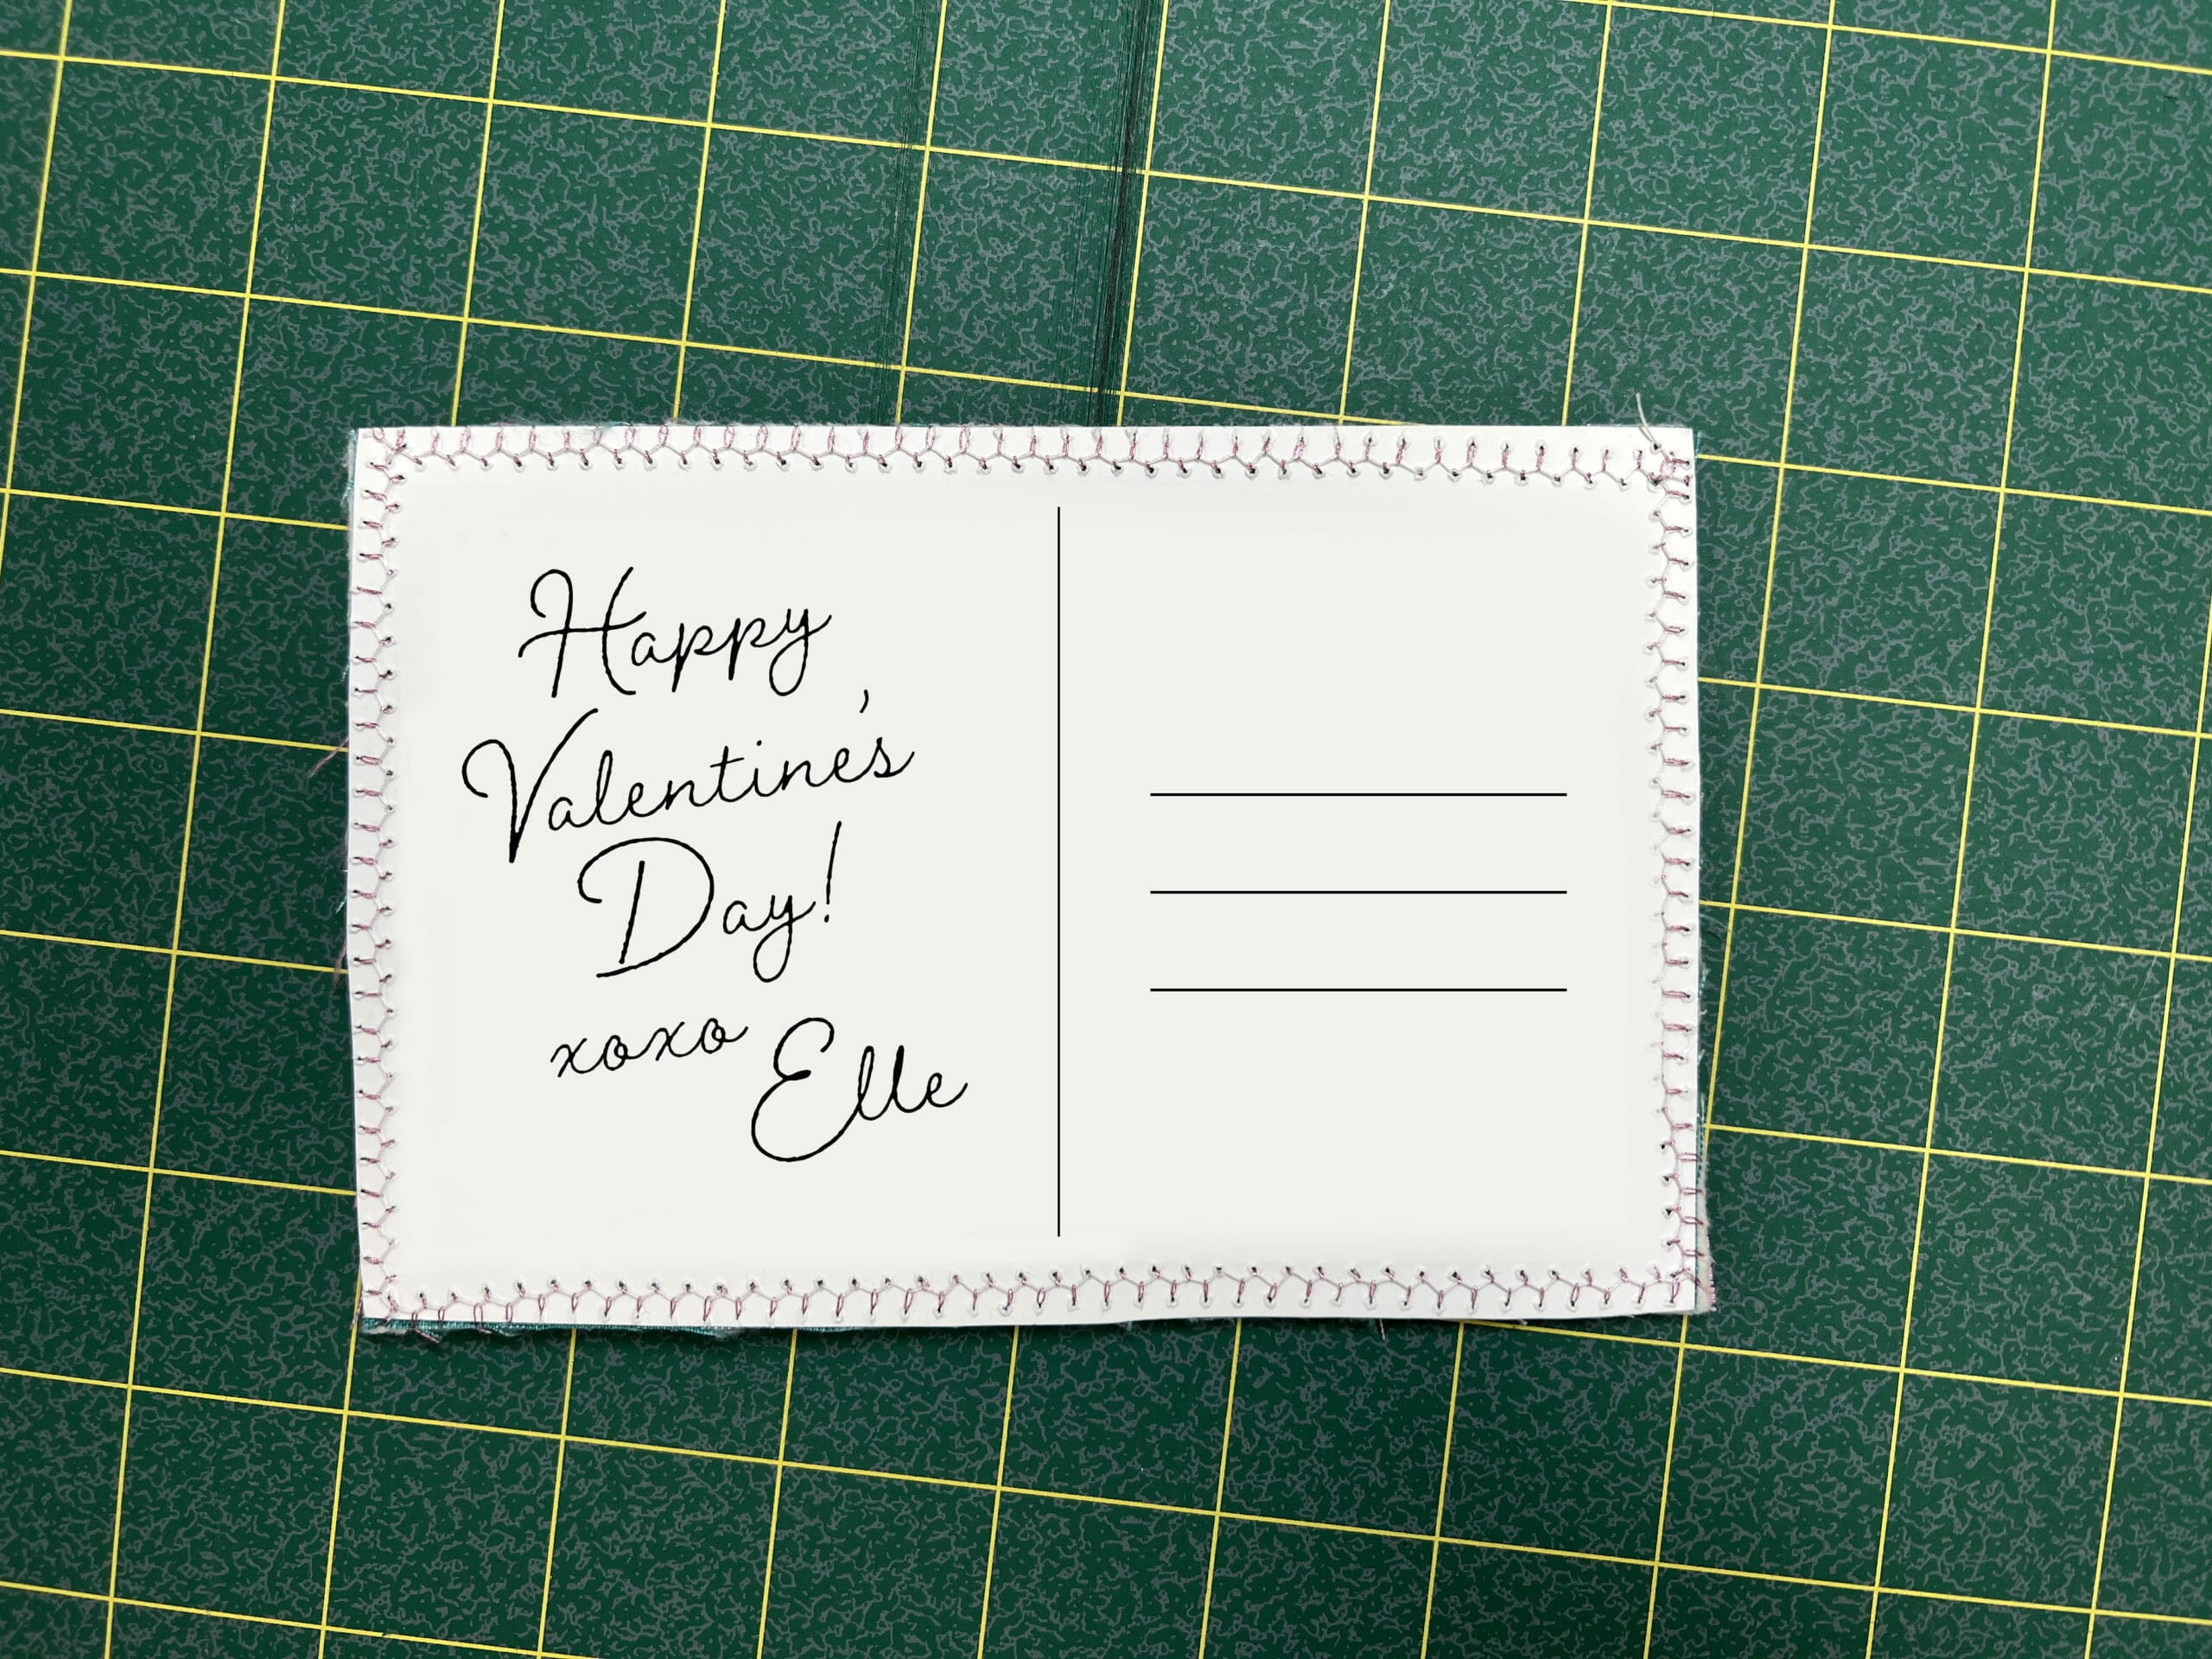 Happy
Valentine's
Day!
xoxo
Elle